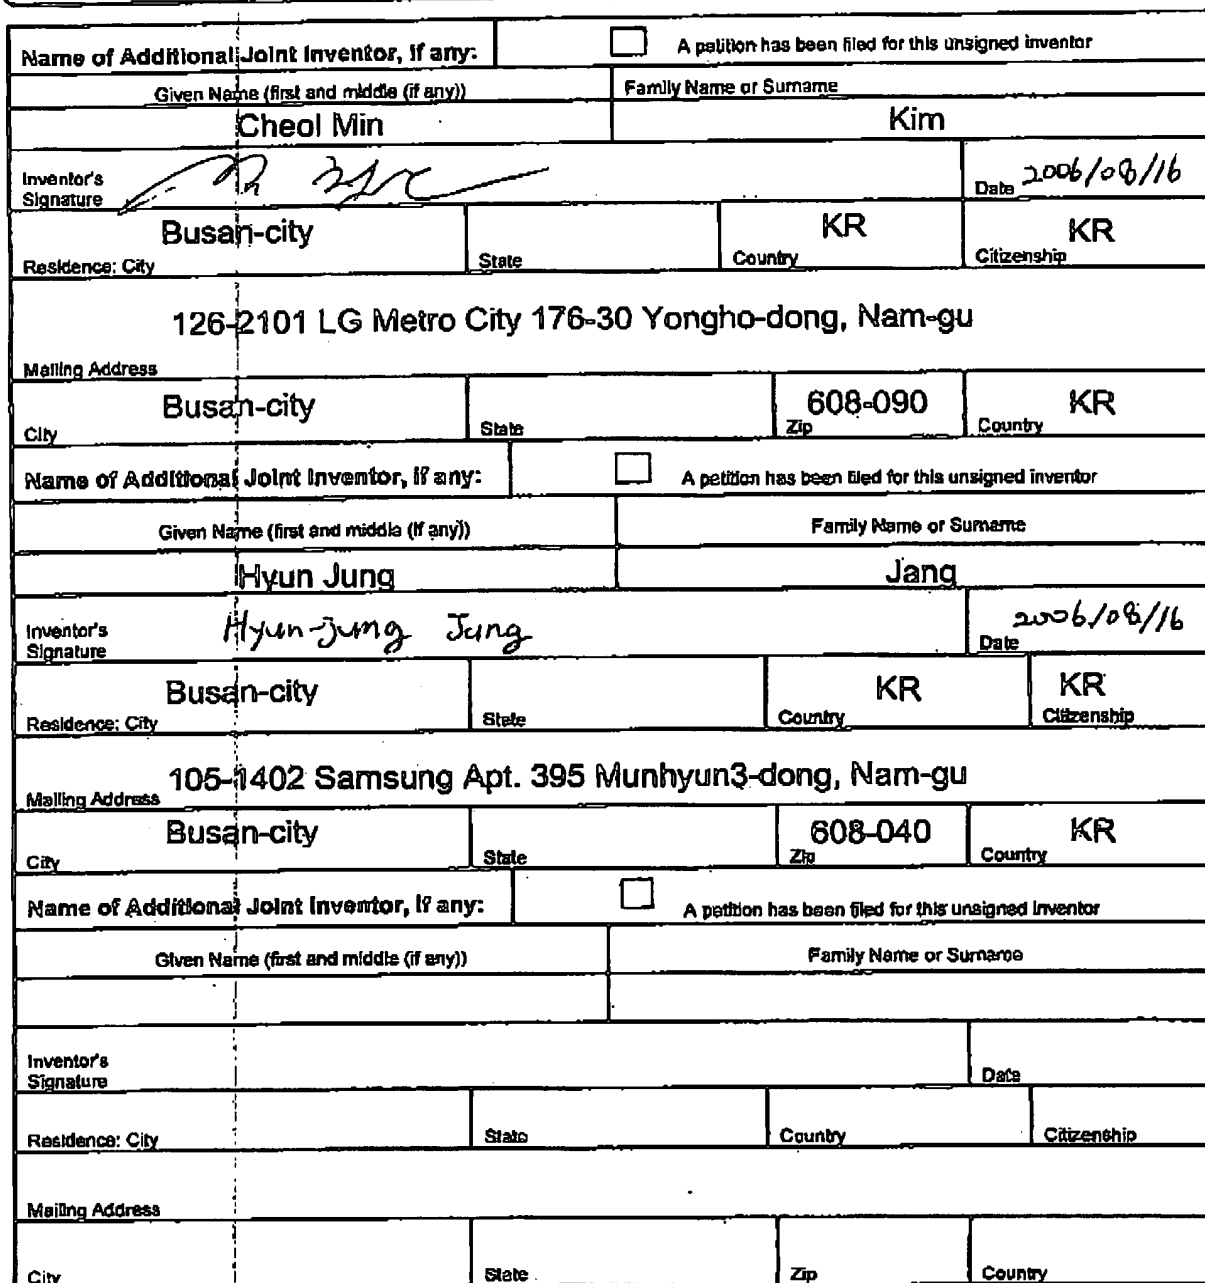 Name of Additional Joint Inventor, if any: A petition has been filed for this unsigned inventor
Given Name (first and middle (if any)) Family Name or Surname
Cheol Min Kim
Inventor's Signature Date 2006/08/16
Busan-city KR KR
Residence: City State Country Citizenship
126-2101 LG Metro City 176-30 Yongho-dong, Nam-gu
Mailing Address
Busan-city 608-090 KR
City State Zip Country
Name of Additional Joint Inventor, if any: A petition has been filed for this unsigned inventor
Given Name (first and middle (if any)) Family Name or Surname
Hyun Jung Jang
Inventor's Signature Hyun-jung Jang Date 2006/08/16
Busan-city KR KR
Residence: City State Country Citizenship
105-1402 Samsung Apt. 395 Munhyun3-dong, Nam-gu
Mailing Address
Busan-city 608-040 KR
City State Zip Country
Name of Additional Joint Inventor, if any: A petition has been filed for this unsigned inventor
Given Name (first and middle (if any)) Family Name or Surname
Inventor's Signature Date
Residence: City State Country Citizenship
Mailing Address
City State Zip Country